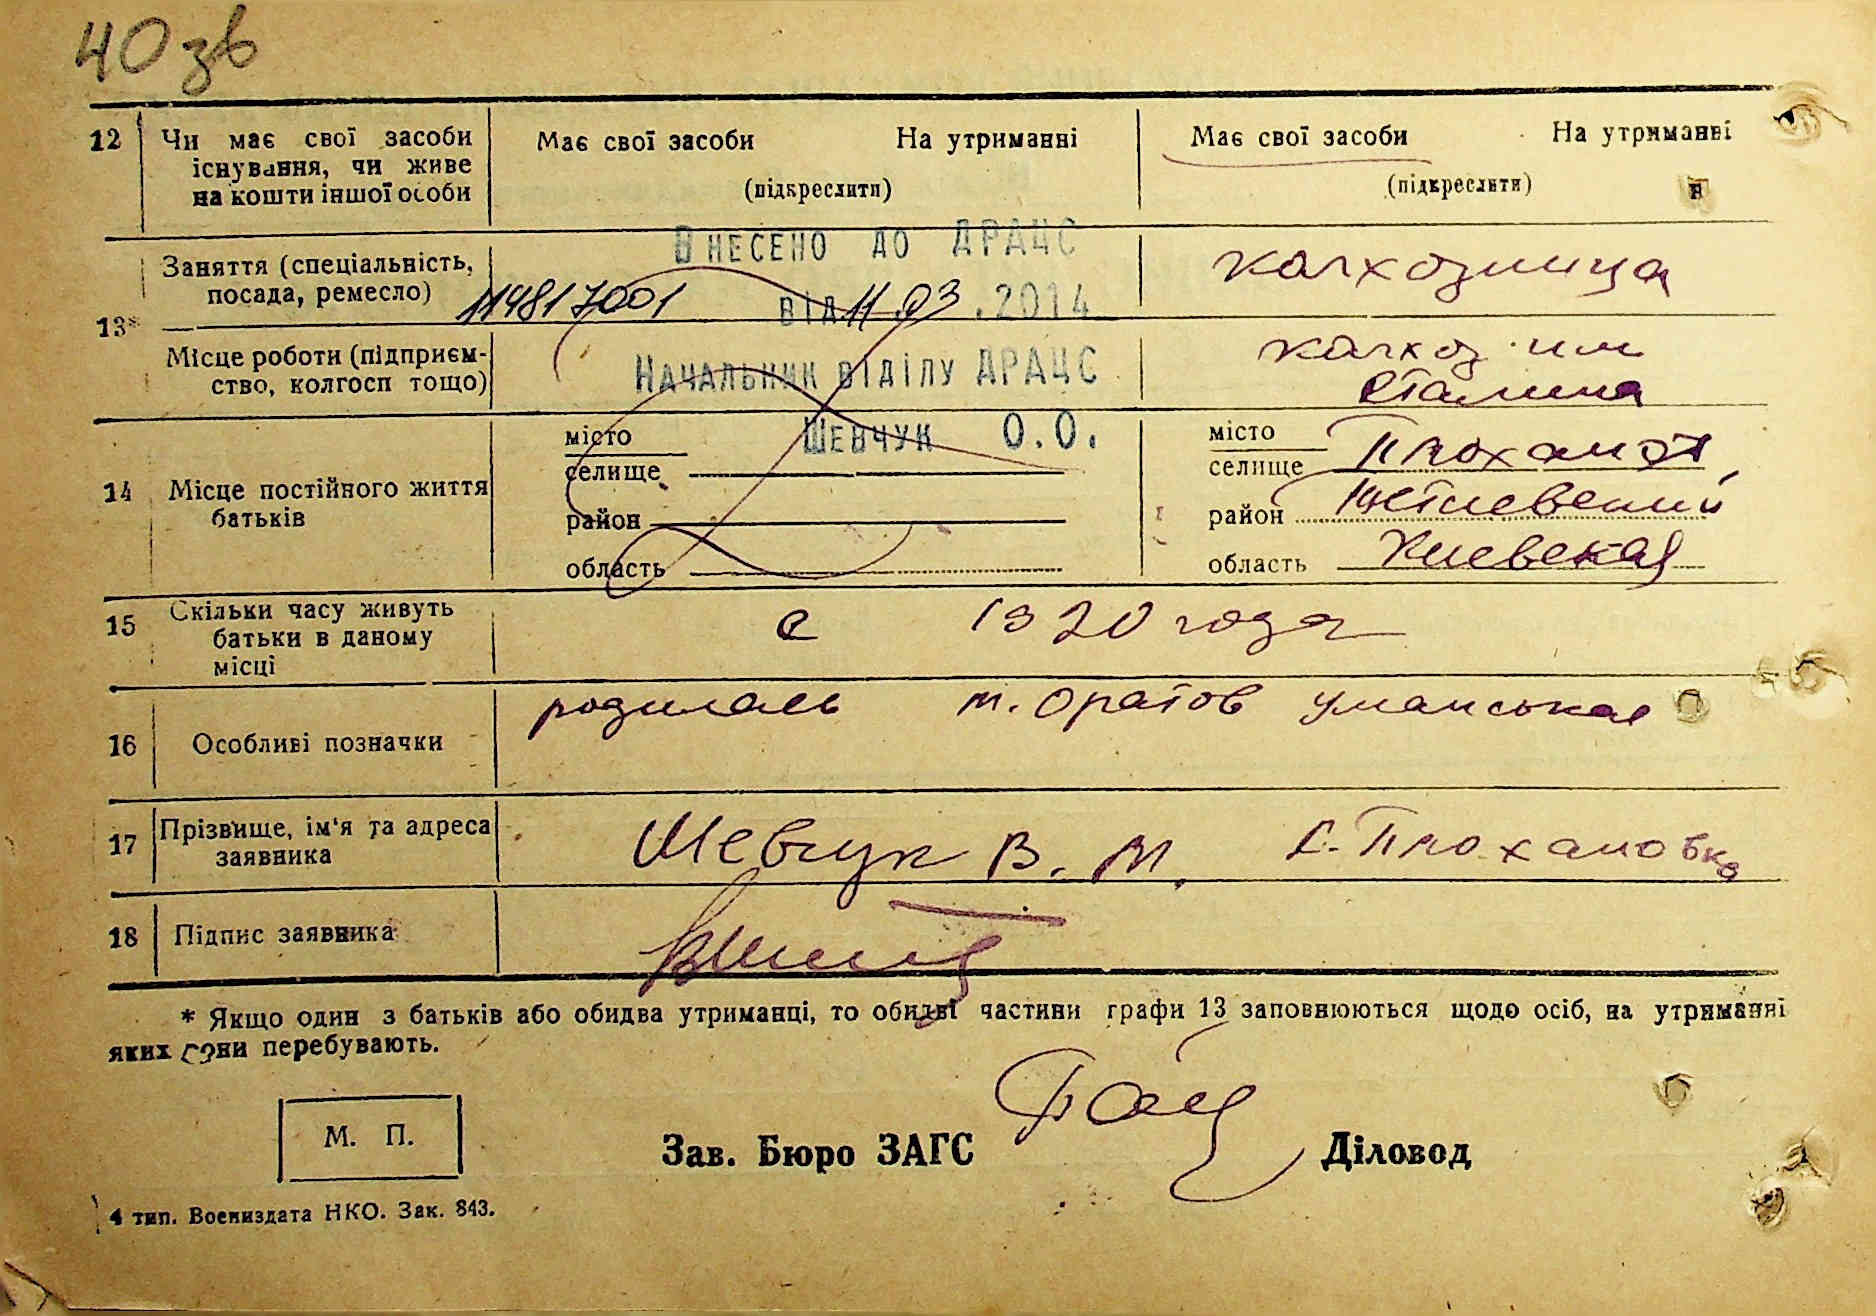 40 зв
12 Чи має свої засоби існування, чи живе на кошти іншої особи
Має свої засоби На утриманні
(підкреслити)
Має свої засоби На утриманні
(підкреслити)
13*
Заняття (спеціальність,
посада, ремесло)
Внесено до ДРАЦС
114817001 від 11.03.2014
колхозница
Місце роботи (підприєм-
ство, колгосп тощо)
Начальник відділу ДРАЦС
Шевчук О.О.
колхоз им
Сталина
14 Місце постійного життя
батьків
місто
селище
район
область
місто
селище
район
область Киевская
15 Скільки часу живуть
батьки в даному
місці
с 1920 года
16 Особливі позначки
родилась м. Оратов Уманськая
17 Прізвище, ім'я та адреса
заявника
Шевчук В. М. с. Плохановка
18 Підпис заявника
* Якщо один з батьків або обидва утриманці, то обидві частини графи 13 заповнюються щодо осіб, на утриманні
яких вони перебувають.
М. П.
Зав. Бюро ЗАГС Діловод
4 тип. Воениздата НКО. Зак. 843.